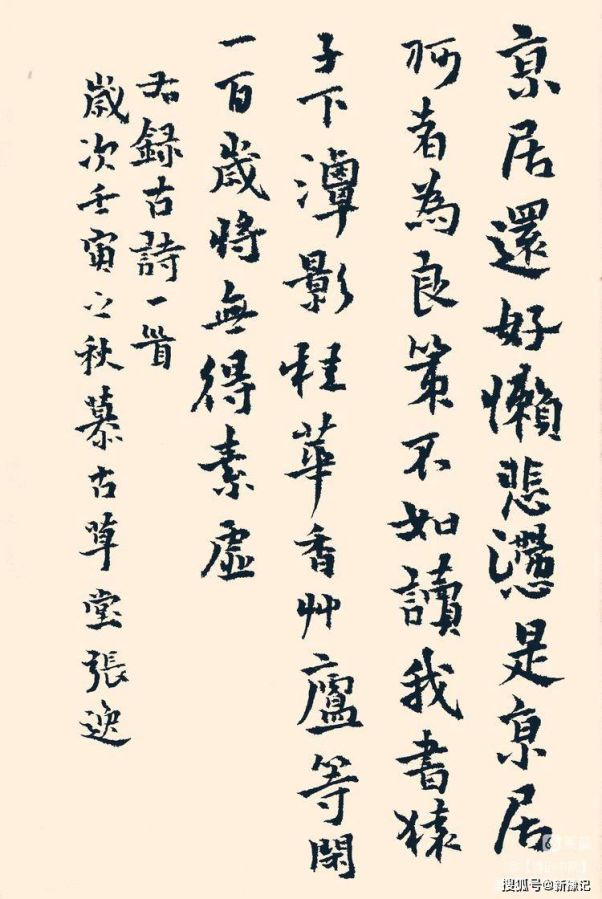 亰居還好懶悲是亰居
何者為良策不如讀我書猿
子下潭影桂華香艸廬等閑
一百歲將無得素虛
右録古詩一首
歲次壬寅之秋慕古草堂張逸
搜狐号@新豫记